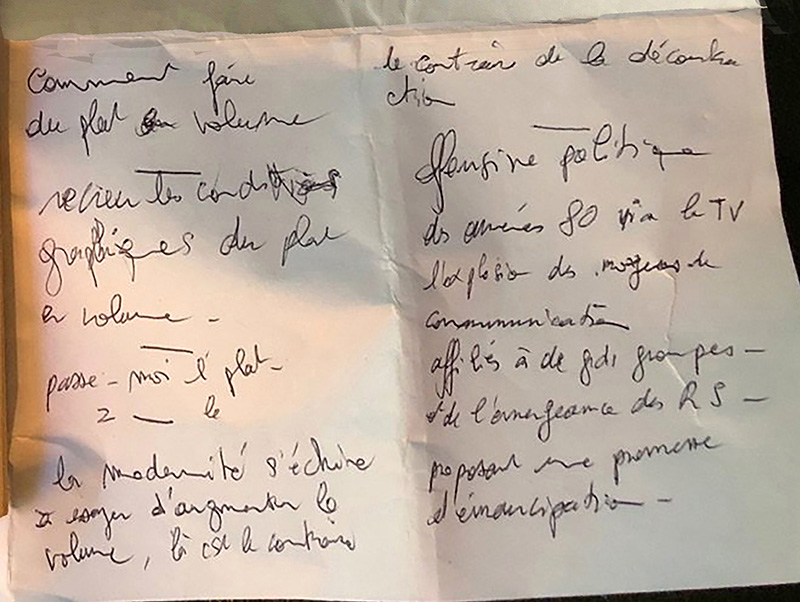 Comment faire
du plat en volume
recréer les conditions
graphiques du plat
en volume -
passe-moi l'plat-
2 — le
la modernité s'échine
à essayer d'augmenter le
volume, là c'est le contraire
le contraire de la déconstru
ction
Offensive politique
des années 80 via la TV
l'explosion des moyens de
communication
affiliés à de gds groupes -
et de l'émergeance des RS -
proposant une promesse
d'émancipation -